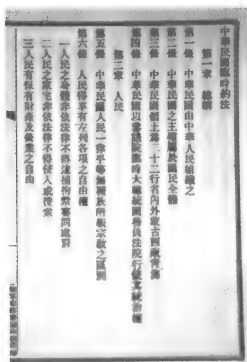 中華民國臨時約法
第一章　總綱
第一條　中華民國由中華人民組織之
第二條　中華民國之主權屬於國民全體
第三條　中華民國領土為二十二行省內外蒙古西藏青海
第四條　中華民國以參議院臨時大總統國務員法院行使其統治權
第二章　人民
第五條　中華民國人民一律平等無種族階級宗教之區別
第六條　人民得享有左列各項之自由權
一人民之身體非依法律不得逮捕拘禁審問處罰
二人民之家宅非依法律不得侵入或搜索
三人民有保有財產及營業之自由